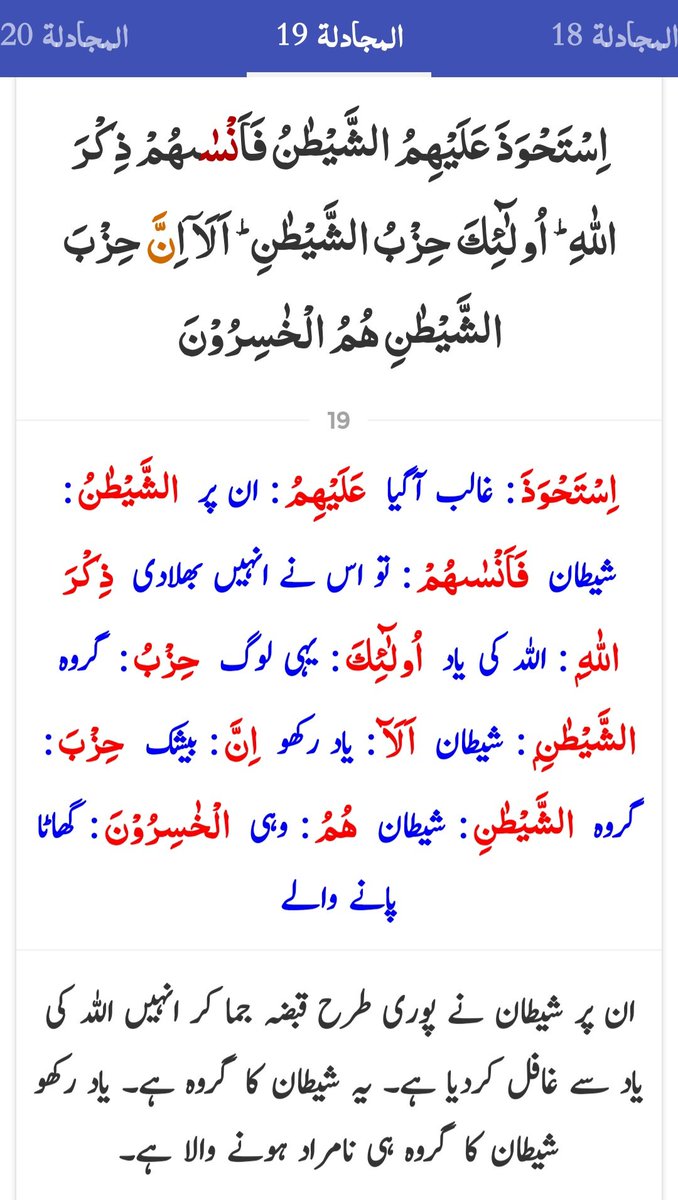 المجادلة 18
المجادلة 19
المجادلة 20
اِسْتَحْوَذَ عَلَيْهِمُ الشَّيْطٰنُ فَاَنْسٰىهُمْ ذِكْرَ
اللّٰهِ ؕ اُولٰٓئِكَ حِزْبُ الشَّيْطٰنِ ؕ اَلَاۤ اِنَّ حِزْبَ
الشَّيْطٰنِ هُمُ الْخٰسِرُوْنَ
19
اِسْتَحْوَذَ : غالب آگیا عَلَيْهِمُ : ان پر الشَّيْطٰنُ :
شیطان فَاَنْسٰىهُمْ : تو اس نے انہیں بھلادی ذِكْرَ
اللّٰهِ : اللہ کی یاد اُولٰٓئِكَ : یہی لوگ حِزْبُ : گروہ
الشَّيْطٰنِ : شیطان اَلَاۤ : یاد رکھو اِنَّ : بیشک حِزْبَ :
گروہ الشَّيْطٰنِ : شیطان هُمُ : وہی الْخٰسِرُوْنَ : گھاٹا
پانے والے
ان پر شیطان نے پوری طرح قبضہ جما کر انہیں اللہ کی
یاد سے غافل کردیا ہے۔ یہ شیطان کا گروہ ہے۔ یاد رکھو
شیطان کا گروہ ہی نامراد ہونے والا ہے۔